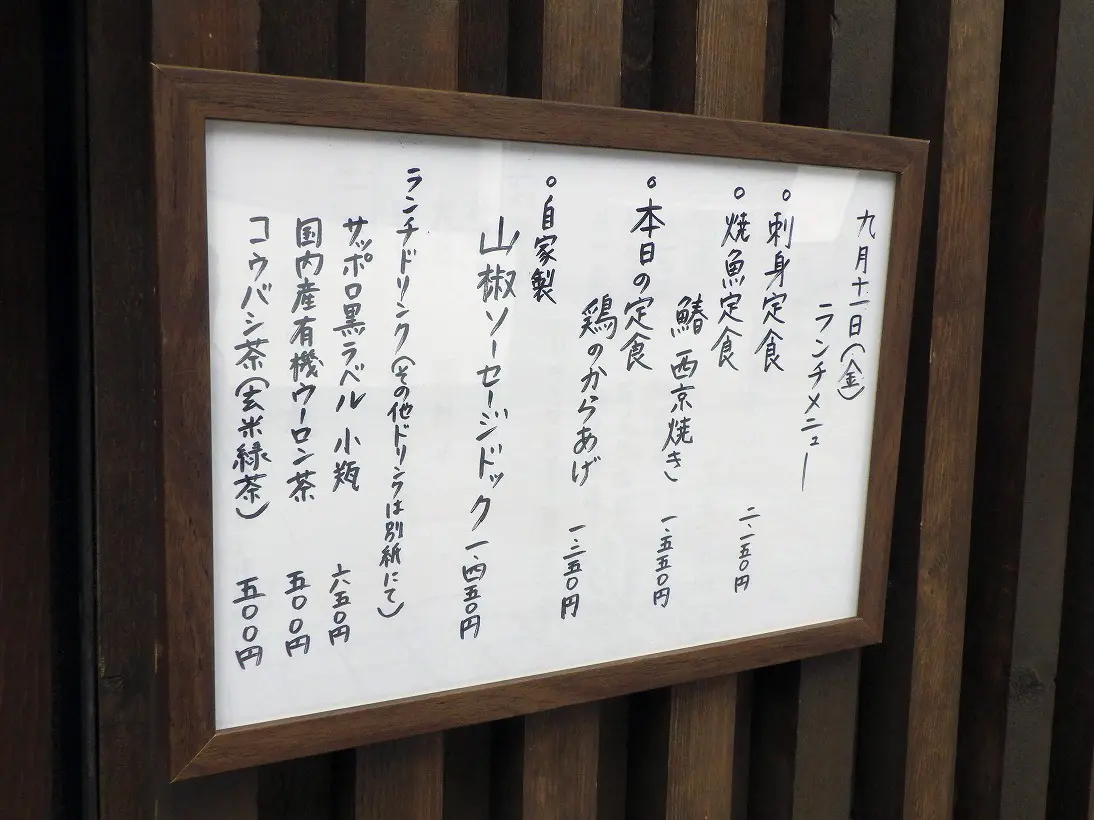 九月十一日(金)
ランチメニュー
○刺身定食 二・一五〇円
○焼魚定食
鰆 西京焼き 一・五五〇円
○本日の定食
鶏のからあげ 一・二五〇円
○自家製
山椒ソーセージドック 一・四五〇円
ランチドリンク(その他ドリンクは別紙にて)
サッポロ黒ラベル 小瓶 六五〇円
国内産有機ウーロン茶 五〇〇円
コウバシ茶(玄米緑茶) 五〇〇円